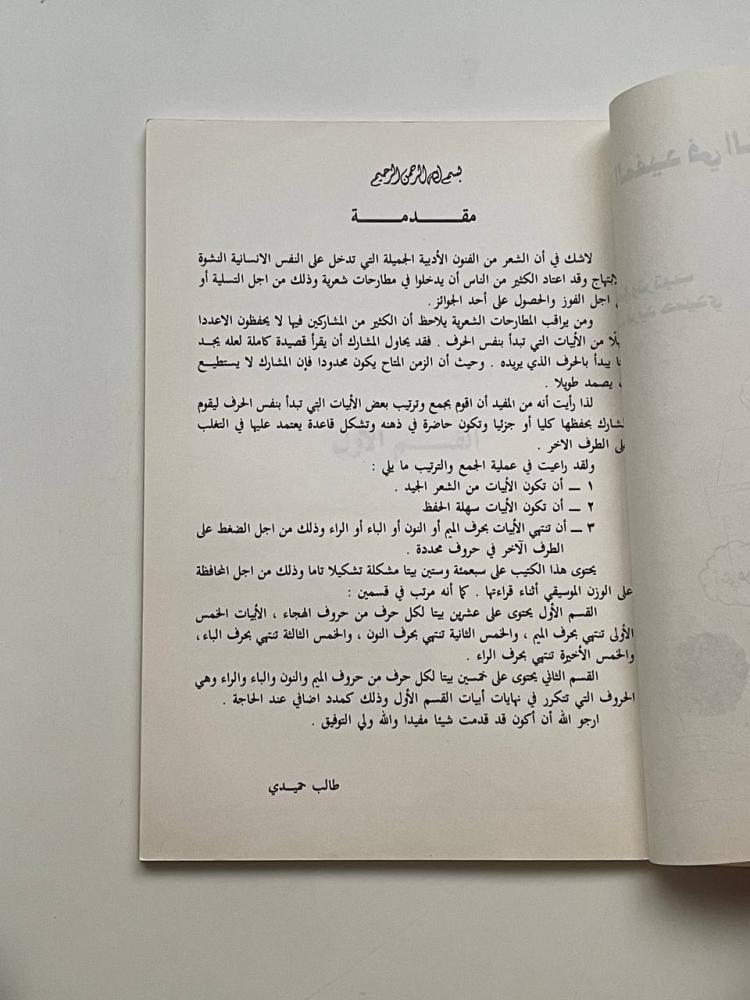 بسم الله الرحمن الرحيم
مقـــدمـــة
لاشك في أن الشعر من الفنون الأدبية الجميلة التي تدخل على النفس الانسانية النشوة
وقد اعتاد الكثير من الناس أن يدخلوا في مطارحات شعرية وذلك من اجل التسلية أو
اجل الفوز والحصول على أحد الجوائز .
ومن يراقب المطارحات الشعرية يلاحظ أن الكثير من المشاركين فيها لا يحفظون الاعددا
من الأبيات التي تبدأ بنفس الحرف . فقد يحاول المشارك أن يقرأ قصيدة كاملة لعله يجد
يبدأ بالحرف الذي يريده . وحيث أن الزمن المتاح يكون محدودا فإن المشارك لا يستطيـــع
يصمد طويلا .
لذا رأيت أنه من المفيد أن اقوم بجمع وترتيب بعض الأبيات التي تبدأ بنفس الحرف ليقوم
بحفظها كليا أو جزئيا وتكون حاضرة في ذهنه وتشكل قاعدة يعتمد عليها في التغلب
الطرف الاخر .
ولقد راعيت في عملية الجمع والترتيب ما يلي :
١ ــ أن تكون الأبيات من الشعر الجيد .
٢ ــ أن تكون الأبيات سهلة الحفظ
٣ ــ أن تنتهي الأبيات بحرف الميم أو النون أو الباء أو الراء وذلك من اجل الضغط على
الطرف الآخر في حروف محددة .
يحتوى هذا الكتيب على سبعمئة وستين بيتا مشكلة تشكيلا تاما وذلك من اجل المحافظة
على الوزن الموسيقي أثناء قراءتها . كما أنه مرتب في قسمين :
القسم الأول يحتوى على عشرين بيتا لكل حرف من حروف الهجاء ، الأبيات الخمس
الأولى تنتهي بحرف الميم ، والخمس الثانية تنتهي بحرف النون ، والخمس الثالثة تنتهي بحرف الباء ،
والخمس الأخيرة تنتهي بحرف الراء .
القسم الثاني يحتوى على خمسين بيتا لكل حرف من حروف الميم والنون والباء والراء وهي
الحروف التي تتكرر في نهايات أبيات القسم الأول وذلك كمدد اضافي عند الحاجة .
ارجو الله أن أكون قد قدمت شيئا مفيدا والله ولي التوفيق .
طالب حميــدي